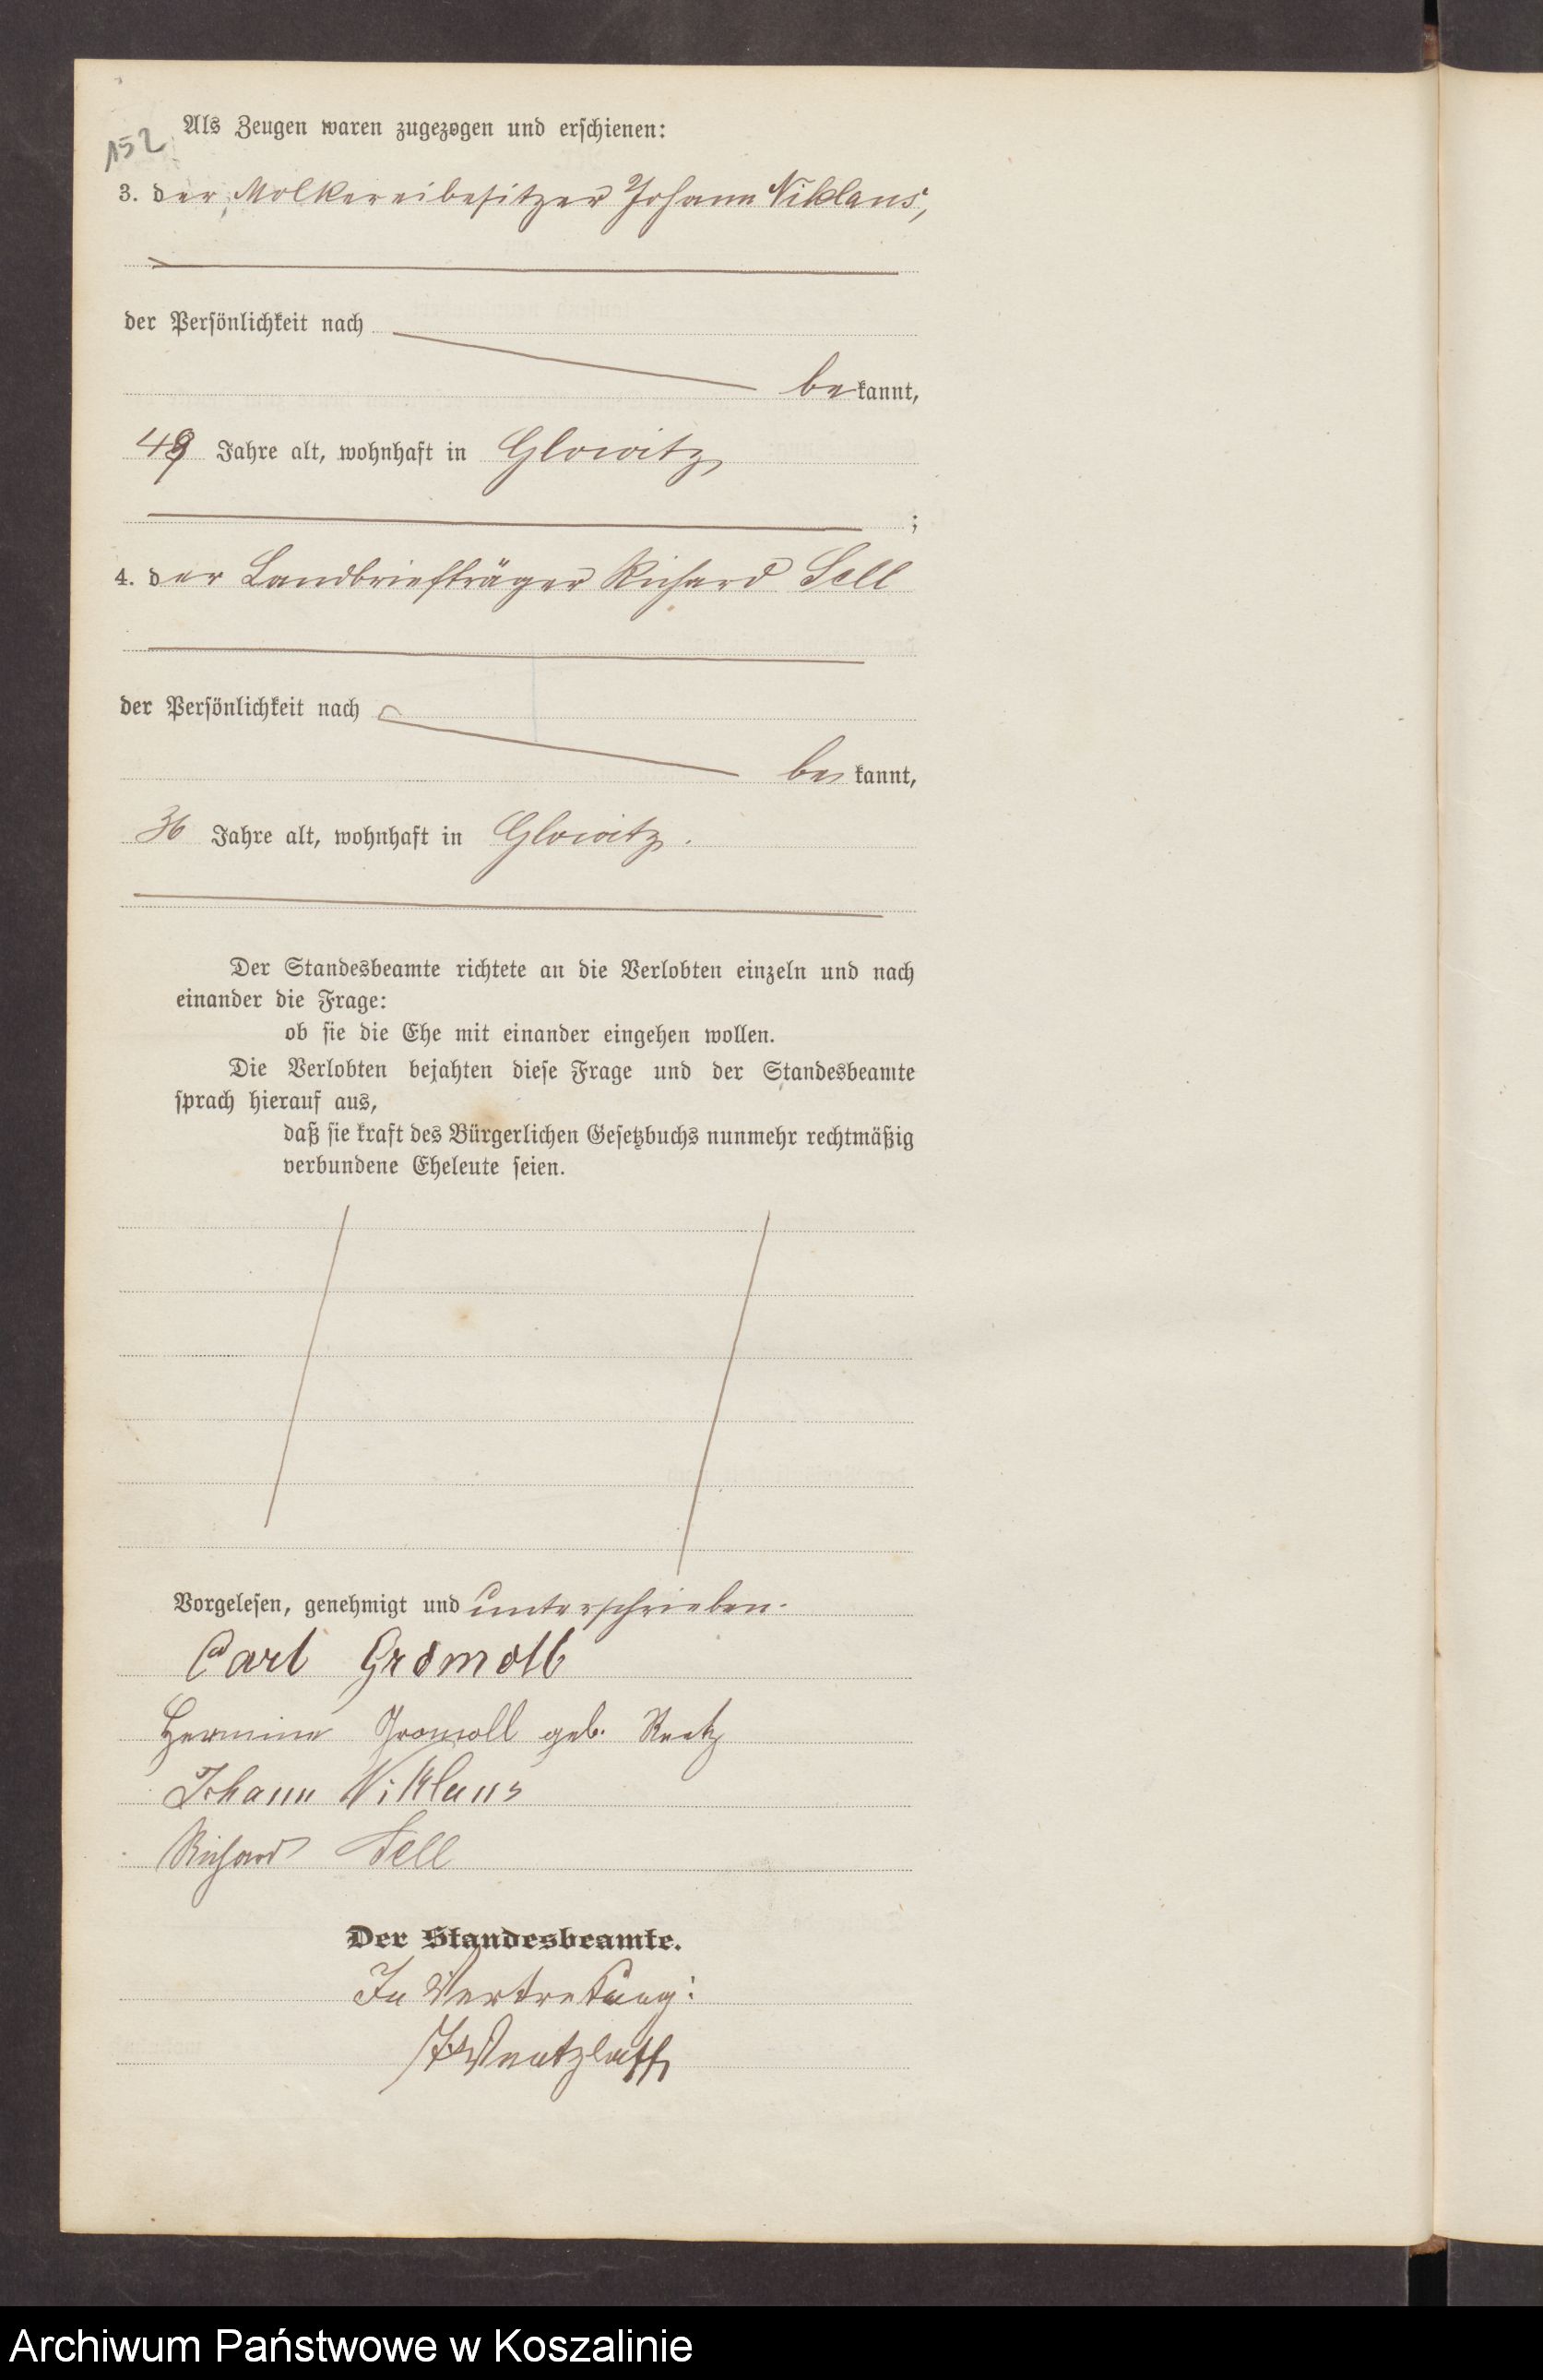 152
Als Zeugen waren zugezogen und erschienen:
3. der Molkereibesitzer Johann Niklaus,
der Persönlichkeit nach
be kannt,
49 Jahre alt, wohnhaft in Glowitz
;
4. der Landbriefträger Richard Sell
der Persönlichkeit nach
be kannt,
36 Jahre alt, wohnhaft in Glowitz.
Der Standesbeamte richtete an die Verlobten einzeln und nach
einander die Frage:
ob sie die Ehe mit einander eingehen wollen.
Die Verlobten bejahten diese Frage und der Standesbeamte
sprach hierauf aus,
daß sie kraft des Bürgerlichen Gesetzbuchs nunmehr rechtmäßig
verbundene Eheleute seien.
Vorgelesen, genehmigt und unterschrieben.
Carl Gromoll
Hermine Gromoll geb. Reetz
Johann Niklaus
Richard Sell
Der Standesbeamte.
In Vertretung:
Archiwum Państwowe w Koszalinie